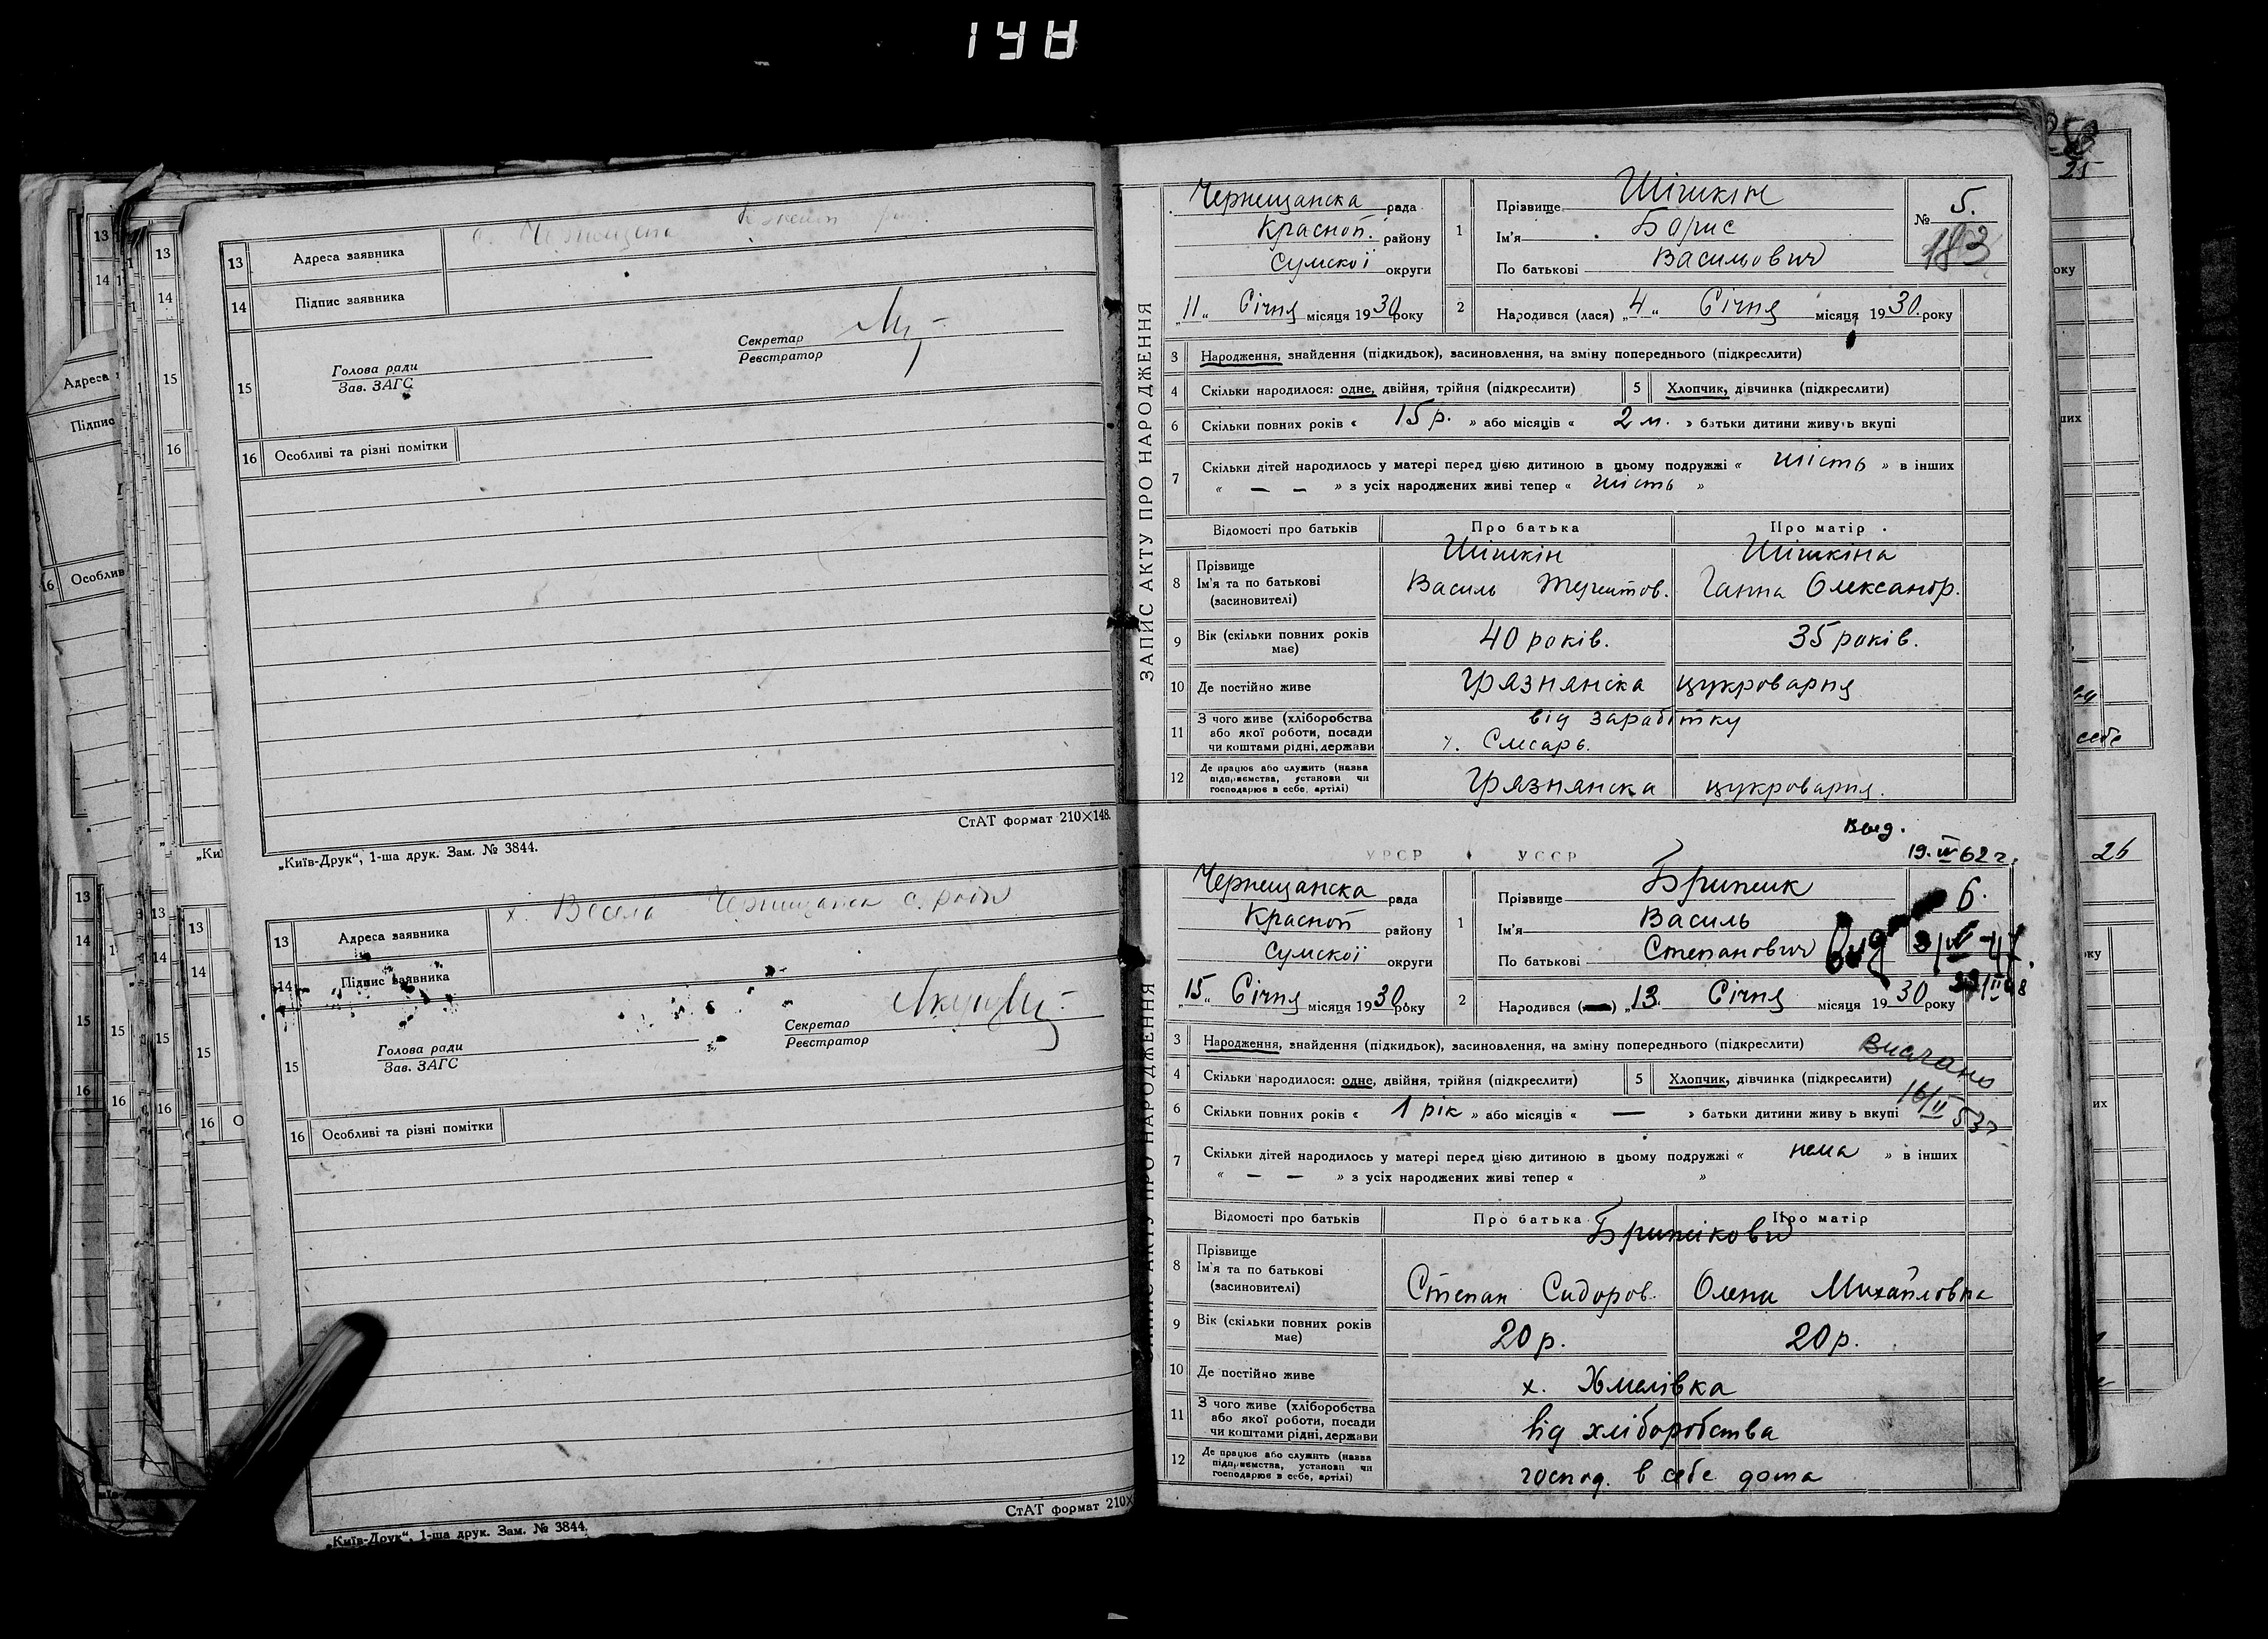 198
13 Адреса заявника
14 Підпис заявника
15
Секретар
Реєстратор
Голова ради
Зав. ЗАГС
16 Особливі та різні помітки
СтАТ формат 210×148.
„Київ-Друк“, 1-ша друк. Зам. № 3844.
13 Адреса заявника х. Весела с. ради
14 Підпис заявника
15
Секретар
Реєстратор
Голова ради
Зав. ЗАГС
16 Особливі та різні помітки
СтАТ формат 210×
„Київ-Друк“, 1-ша друк. Зам. № 3844.
ЗАПИС АКТУ ПРО НАРОДЖЕННЯ
Чернещанска рада
Красноп. району
Сумскої округи
„11“ Січня місяця 1930 року
1 Прізвище Шішкін
Ім'я Борис
По батькові Васильович
№ 5.
183
2 Народився (лася) „4“ Січня місяця 1930 року
3 Народження, знайдення (підкидьок), засиновлення, на зміну попереднього (підкреслити)
4 Скільки народилося: одне, двійня, трійня (підкреслити) 5 Хлопчик, дівчинка (підкреслити)
6 Скільки повних років « 15 р. » або місяців « 2 м. » батьки дитини живуть вкупі
7 Скільки дітей народилось у матері перед цією дитиною в цьому подружжі « шість » в інших
« — — » з усіх народжених живі тепер « шість »
Відомості про батьків Про батька Про матір
8 Прізвище Шішкін Шішкіна
Ім'я та по батькові Василь Ганна Олександр.
(засиновителі)
9 Вік (скільки повних років має) 40 років. 35 років.
10 Де постійно живе Грязнянска цукроварня
11 З чого живе (хліборобства або якої роботи, посади чи коштами рідні, держави від заработку
Слесарь.
12 Де працює або служить (назва підприємства, установи чи господарює в себе, артілі) Грязнянска цукроварня.
19.IV 62 г.
УРСР УССР
ЗАПИС АКТУ ПРО НАРОДЖЕННЯ
Чернещанска рада
Красноп району
Сумскої округи
„15“ Січня місяця 1930 року
1 Прізвище
Ім'я Василь
По батькові Степанович
6.
2 Народився „13 Січня місяця 1930 року
3 Народження, знайдення (підкидьок), засиновлення, на зміну попереднього (підкреслити)
4 Скільки народилося: одне, двійня, трійня (підкреслити) 5 Хлопчик, дівчинка (підкреслити)
6 Скільки повних років « 1 рік » або місяців « — » батьки дитини живу ь вкупі
16/II 53г
7 Скільки дітей народилось у матері перед цією дитиною в цьому подружжі « нема » в інших
« — — » з усіх народжених живі тепер « »
Відомості про батьків Про батька Про матір
8 Прізвище
Ім'я та по батькові
(засиновителі) Степан Сидоров. Олена Михайловна
9 Вік (скільки повних років має) 20 р. 20 р.
10 Де постійно живе х. Хмелівка
11 З чого живе (хліборобства або якої роботи, посади чи коштами рідні, держави від хліборобства
12 Де працює або служить (назва підприємства, установи чи господарює в себе, артілі) господ. в себе дома